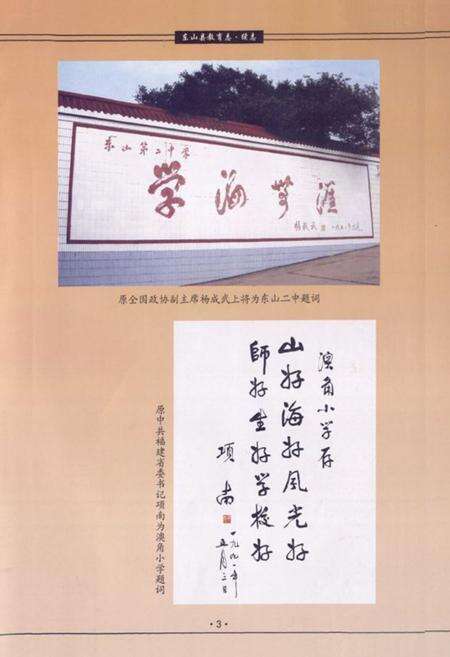 东山县教育志·续志
东山第二中学
学海无涯
杨成武
原全国政协副主席杨成武上将为东山二中题词
澳角小学存
山好海好风光好
師好生好学校好
项南
一九九一年
五月三日
原中共福建省委书记项南为澳角小学题词
·3·